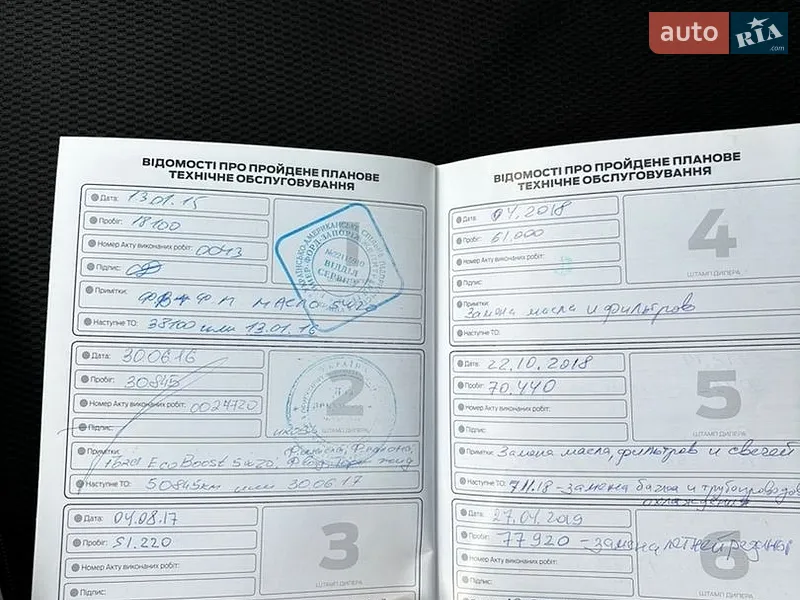 auto RIA .com
ВІДОМОСТІ ПРО ПРОЙДЕНЕ ПЛАНОВЕ
ТЕХНІЧНЕ ОБСЛУГОВУВАННЯ
Дата: 13.01.15
Пробіг: 18100
Номер Акту виконаних робіт: 0043
Підпис:
Примітки:
МАСЛО 5W20
Наступне ТО: 38100 или 13.01.16
1
ВІДДІЛ
СЕРВІСУ
Дата: 30.06.16
Пробіг: 30845
Номер Акту виконаних робіт: 0024720
Підпис:
Примітки:
EcoBoost 5w20
Наступне ТО: 50845км или 30.06.17
2
УКРАЇНА
ШТАМП ДИЛЕРА
Дата: 04.08.17
Пробіг: 51.220
Номер Акту виконаних робіт:
Підпис:
3
ШТАМП ДИЛЕРА
ВІДОМОСТІ ПРО ПРОЙДЕНЕ ПЛАНОВЕ
ТЕХНІЧНЕ ОБСЛУГОВУВАННЯ
Дата: 04.2018
Пробіг: 61.000
Номер Акту виконаних робіт:
Підпис:
Примітки:
Замена масла и фильтров
Наступне ТО:
4
ШТАМП ДИЛЕРА
Дата: 22.10.2018
Пробіг: 70.440
Номер Акту виконаних робіт:
Підпис:
Примітки: Замена масла, фильтров и свечей
Наступне ТО: 7.11.18 - замена бачка и трубопроводов
охлаждения
5
ШТАМП ДИЛЕРА
Дата: 27.04.2019
Пробіг: 77920 - замена летней резины
Номер Акту виконаних робіт:
Підпис:
6
ШТАМП ДИЛЕРА